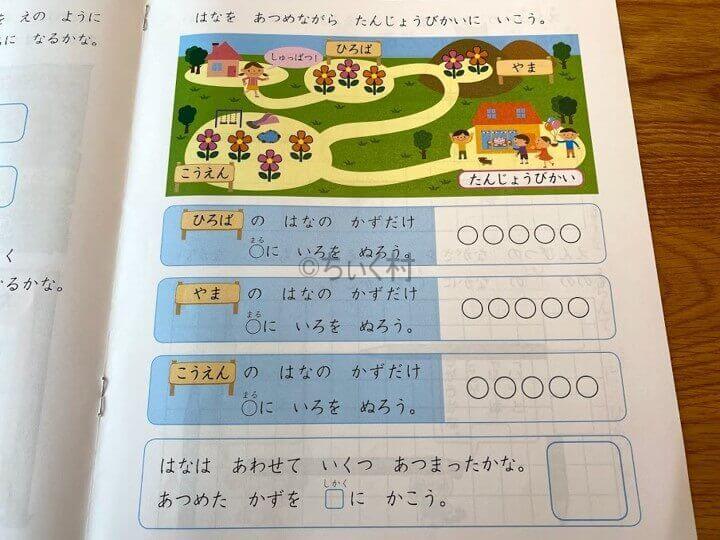 を えの ように
に なるかな。
く
るかな。
はなを あつめながら たんじょうびかいに いこう。
しゅっぱつ!
ひろば
やま
こうえん
たんじょうびかい
ひろば の はなの かずだけ
まる
○に いろを ぬろう。
©ちいく村
やま の はなの かずだけ
まる
○に いろを ぬろう。
こうえん の はなの かずだけ
まる
○に いろを ぬろう。
はなは あわせて いくつ あつまったかな。
しかく
あつめた かずを □に かこう。